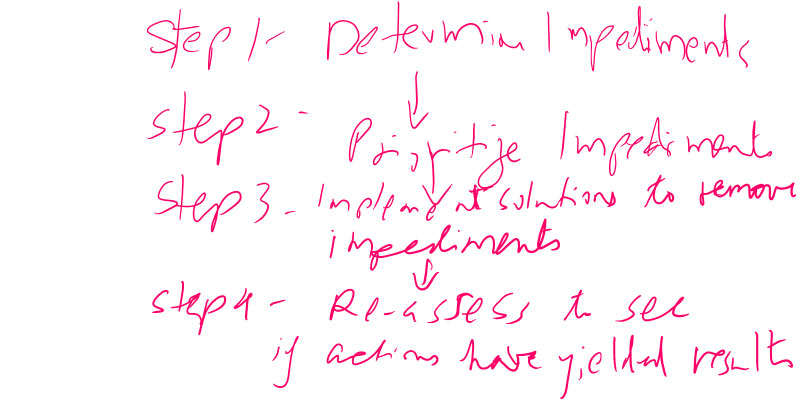 Step 1- Determin Impediments
Step 2- Prioritize Impediments
Step 3- Implement solutions to remove
impediments
Step 4- Re-assess to see
if actions have yielded results